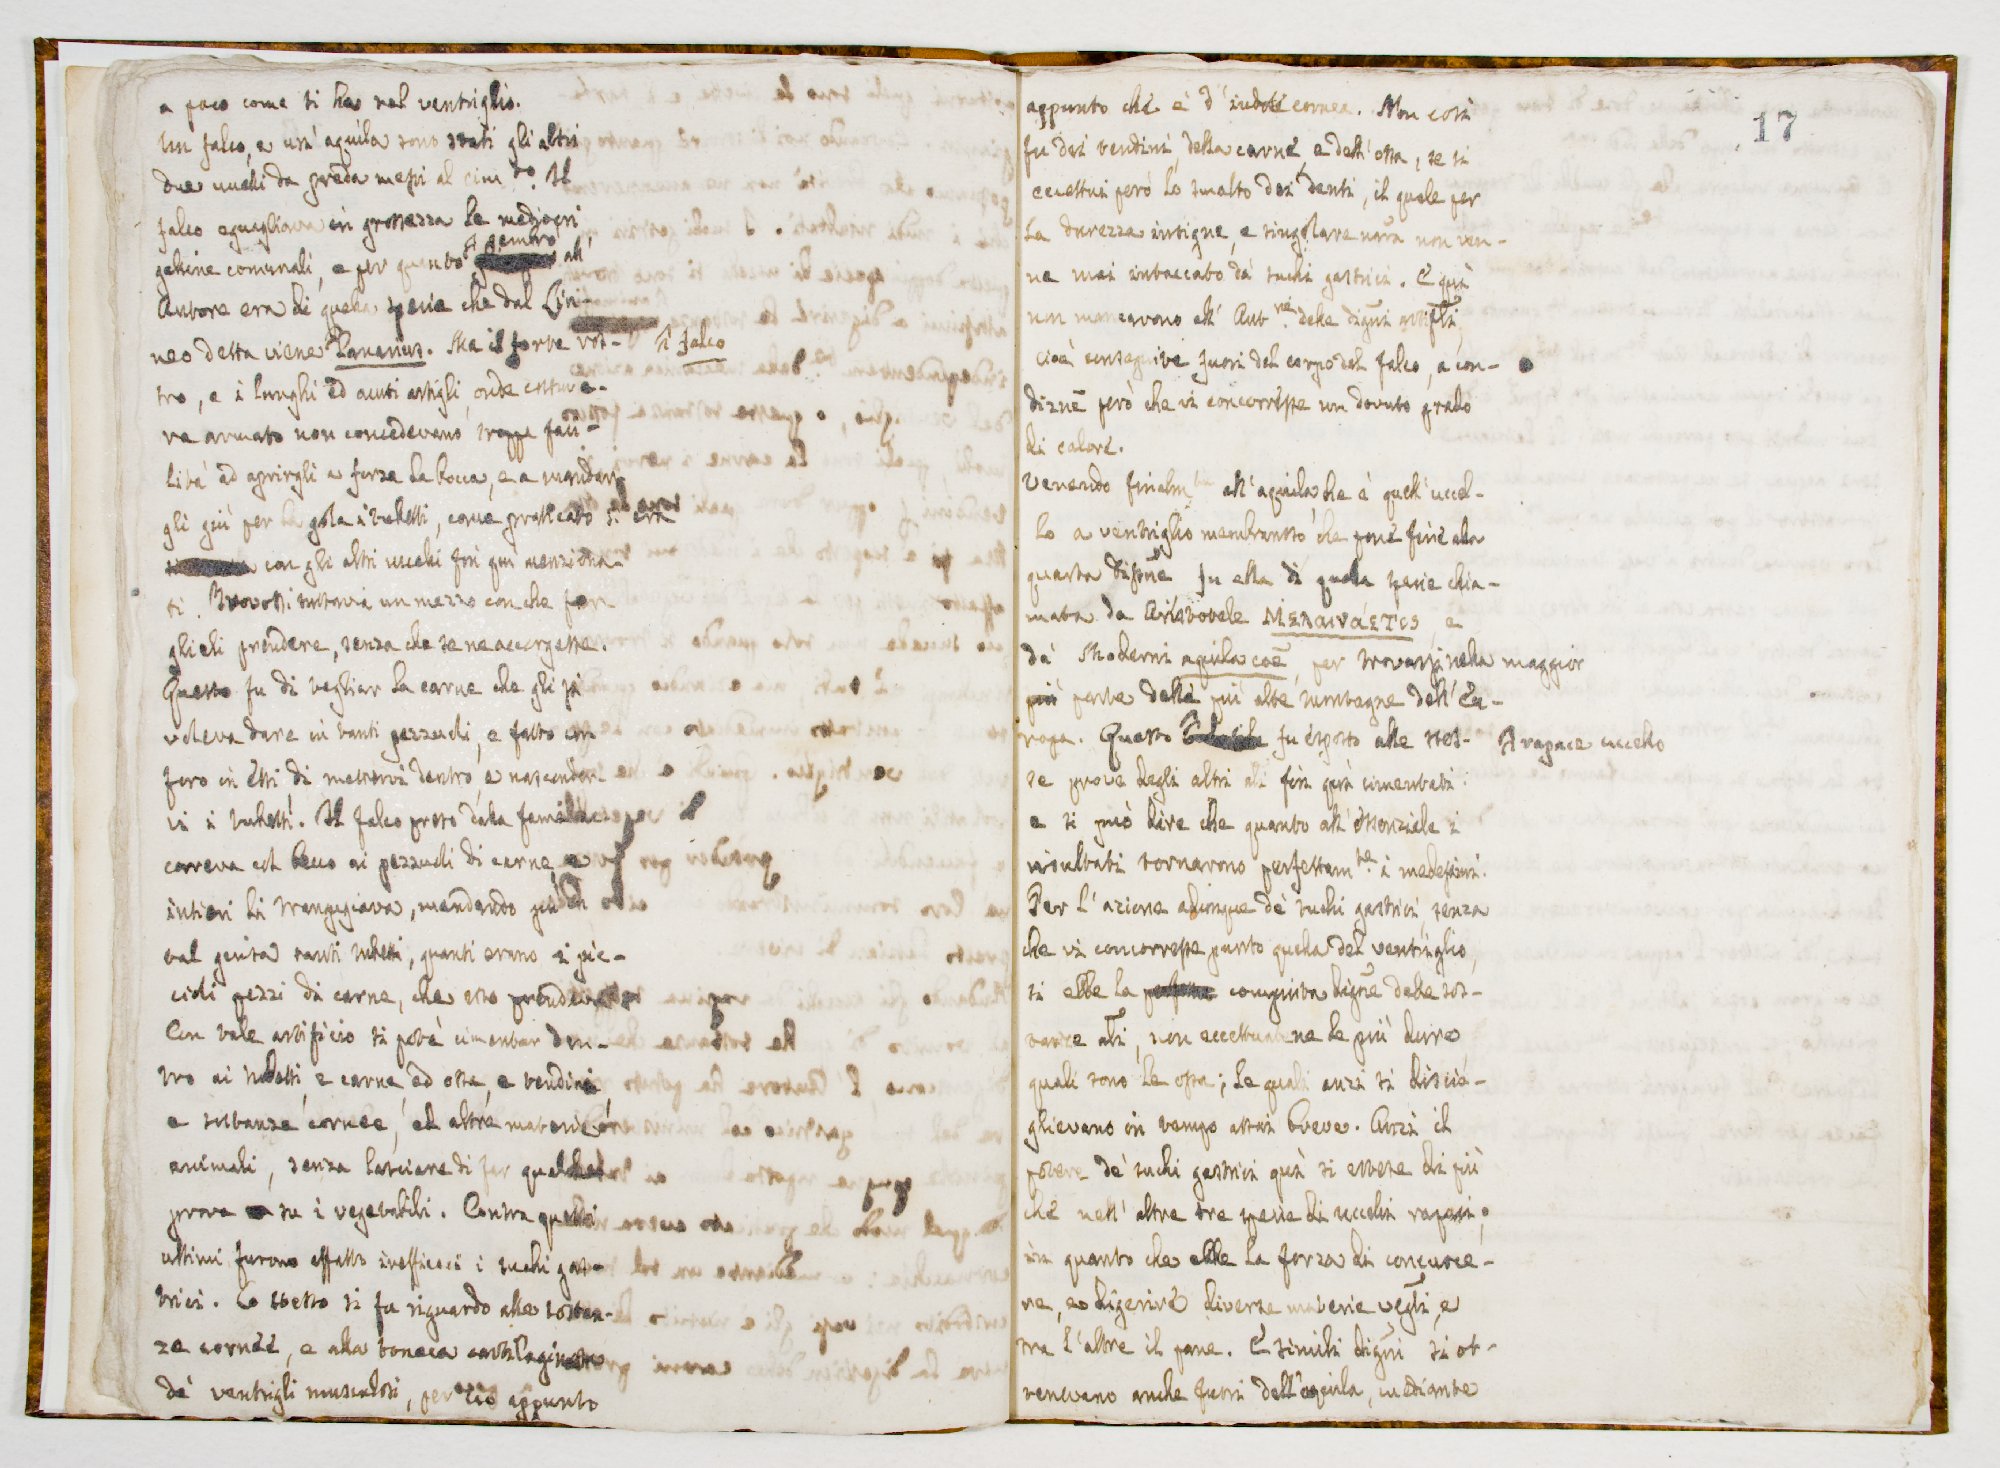 a poco come si ha nel ventriglio.
Un falco, e un' aquila sono stati gli altri
due uccelli da preda messi al cim.to. Il
falco eguagliava in grossezza le mediocri
galline comunali, e per quanto sembrò all'
Autore era di quella spezie che dal Lin-
neo detta viene Lanarius. Ma il forte ros- Il falco
tro, e i lunghi ed acuti artigli, onde
va armato non concedevano troppe faci-
lità ad aprirgli a forza la bocca, e a mandar-
gli giù per la gola i tubetti, come praticato si era
con gli altri uccelli fin qui menziona-
ti. Trovossi tuttavia un mezzo con che far-
glieli prendere, senza che se ne accorgesse.
Questo fu di tagliar la carne che gli si
voleva dare in tanti pezzuoli, e fatto un
foro in essi di mettervi dentro, e nasconder-
vi i tubetti. Il falco preso dalla fame
correva col becco ai pezzuoli di carne, e
intieri li trangugiava, mandando giù in
tal guisa tanti tubetti, quanti erano i pic-
cioli pezzi di carne, che esso prendeva.
Con tale artificio si potè cimentar den-
tro ai tubetti e carne, ed ossa, e tendini,
e sostanze cornee, ed altre materie
animali, senza lasciare di far qualche
prova su i vegetabili. Contra questi
ultimi furono affatto inefficaci i succhi gas-
trici. Lo stesso si fu riguardo alle sostan-
ze cornee, e alla tonaca cartilaginosa
de' ventrigli muscolosi, per ciò appunto
17
appunto che è d' indole cornea. Non così
fu dei tendini, della carne, e dell' ossa, se si
eccettui però lo smalto dei denti, il quale per
la durezza insigne, e singolare nãra non ven-
ne mai intaccato da' succhi gastrici. E quì
non mancavono all' Aut.re delle digni artifli,
cioè conseguite fuori del corpo del falco, a con-
dizne però che vi concorresse un dovuto grado
di calore.
Venendo finalm.te all' aquila che è quell' uccel-
lo a ventriglio membranoso che pone fine alla
quarta dissne fu ella di quella spezie chia-
mata da Aristotele Μελαινάετος, e
da' Moderni aquila coe, per trovarsi nella maggior
parte delle più alte montagne dell' Eu-
ropa. Questo rapace uccello fu esposto alle stes-
se prove degli altri fin quì cimentati:
e si può dire che quanto all' essenziale i
risultati tornarono perfettam.te i medesimi.
Per l' azione adunque de' succhi gastrici, senza
che vi concorresse punto quella del ventriglio,
si ebbe la compiuta digne delle sos-
tanze ali, non eccettuatene le più dure,
quali sono le ossa; le quali anzi si discio-
glievano in tempo assai breve. Anzi il
potere de' succhi gastrici quì si estese di più
che nell' altre tre spezie di uccelli rapaci;
in quanto che ebbe la forza di concuoce-
re, e digerire diverse materie vegli, e
tra l' altre il pane. E simili digni si ot-
tenevano anche fuori dell' aquila, mediante